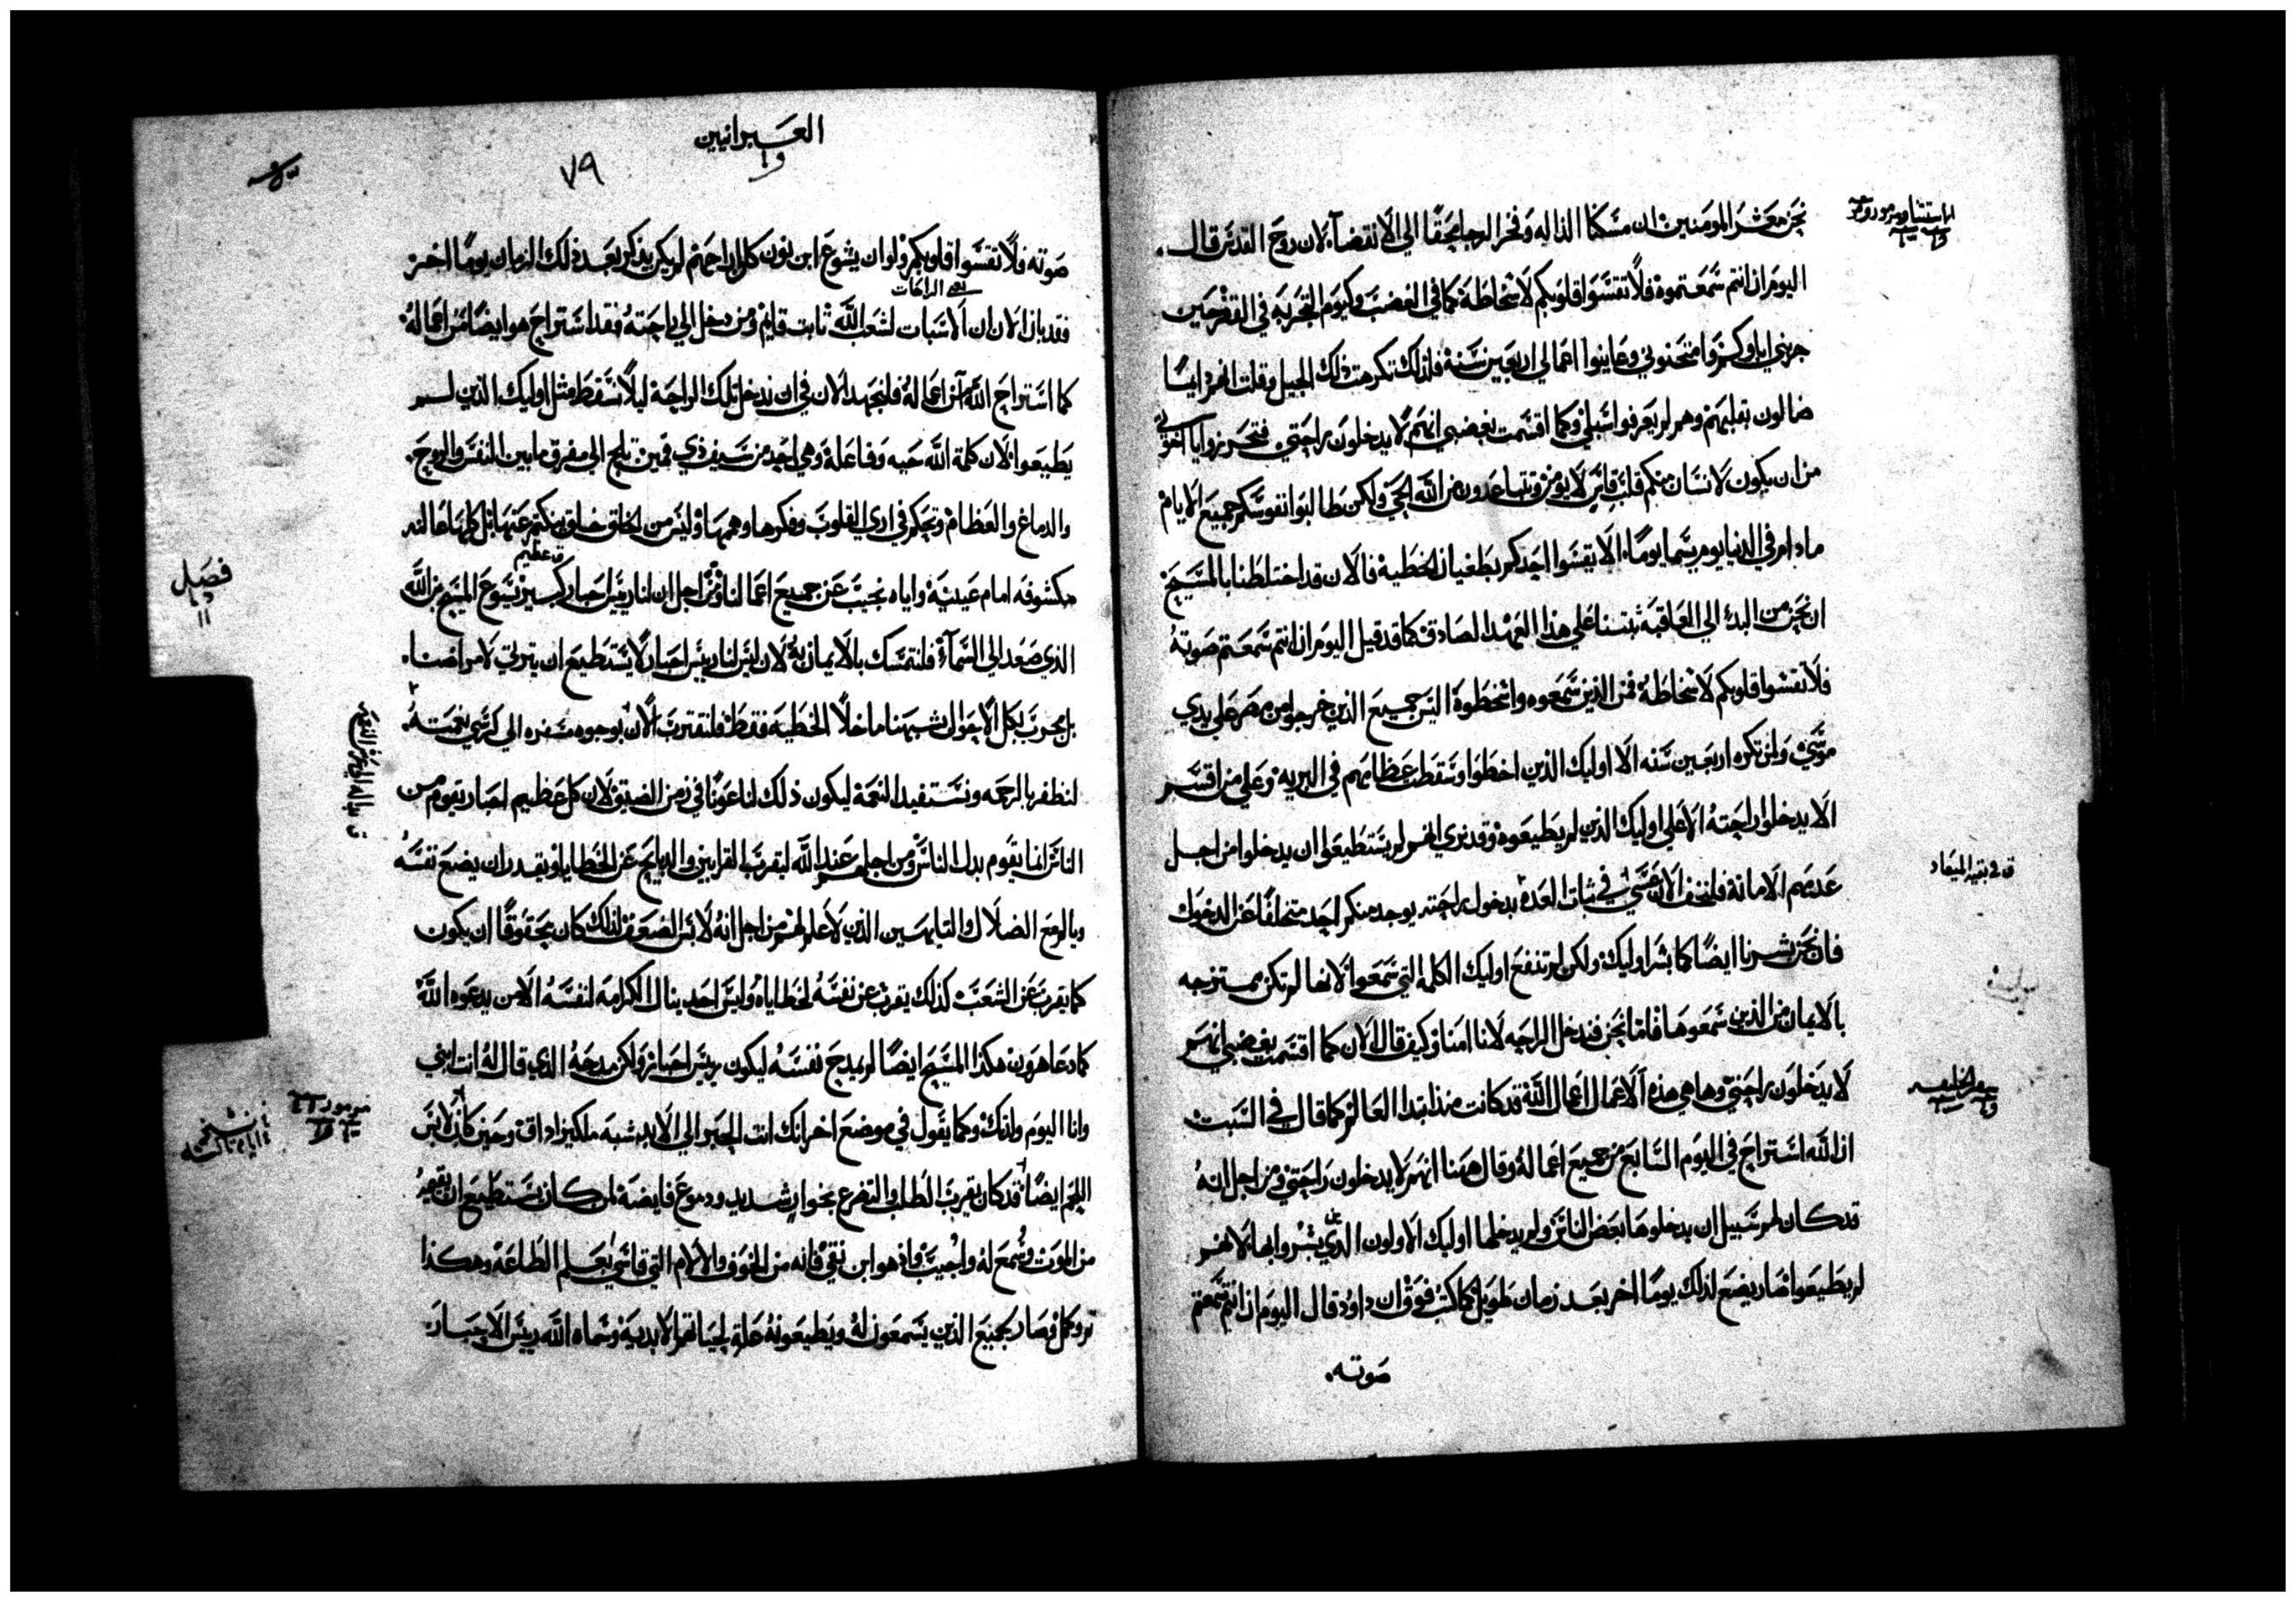 نحن معشر المومنين ان مسكنا الذاله وفخر الرجا محققا الي الانقضاء لان روح القدس قال.
اليوم ان انتم سمعتموه فلا تقسوا قلوبكم لاسخاطه كما في الغضب وكيوم التجربه في القفر حين
جربني اباوكم وامتحنوني وعاينوا اعمالي اربعين سنة فلذلك تكرهت ذلك الجيل وقلت انهم ايسا
ضالون بقلبهم وهم لم يعرفوا اسبلي وكما اقسمت بغضبي انهم لا يدخلون راحتي فتحرزوا يا اخوتي
من ان يكون لانسان منكم قلب قاس لا يومن وتتباعدون من الله الحي ولكن طالبوا نفوسكم جميع الايام
مادام في الدنيا يوم يسما يوما. الا يقسوا احدكم بطغيان الخطية فالان قد اختلطنا بالمسيح
ان نحن من البدء الي العاقبة ثبتنا علي هذا العهد الصادق كما قد قيل اليوم ان انتم سمعتم صوته
فلا تقسوا قلوبكم لاسخاطه فمن الذين سمعوه واسخطوه اليس جميع الذين خرجوا من مصر علي يدي
موسي ولمن تكره اربعين سنه الا اوليك الذين اخطوا وسقطت عظامهم في البريه وعلي من اقسم
الا يدخلوا راحته الا علي اوليك الذين لم يطيعوه وقد نري انهم لم يستطيعوا ان يدخلوا من اجل
عدمهم الامانة فلنخف الان عسي في ثبات العدة بدخول راحته يوجد منكم احد متخلفا عن الدخول
فانا نحن بشرنا ايضا كما بشر اوليك ولكن لم تنفع اوليك الكلمه التي سمعوا لانها لم تكن ممتزجه
بالايمان من الذين سمعوها فاما نحن فندخل الراحه لاننا امنا وكيف قال الان كما اقسمت بغضبي انهم
لا يدخلون راحتي وها هي هذه الاعمال اعمال الله قد كانت منذ ابتدا العالم كما قال في السبت
ان الله استراح في اليوم السابع من جميع اعماله وقال ههنا انهم لا يدخلون راحتي ومن اجل انه
قد كان لهم سبيل ان يدخلوها بعض الناس ولم يدخلها اوليك الاولون الذي بشروا بها لانهم
لم يطيعوا صار يضع لذلك يوما اخر بعد زمان طويل كما كتب فوق ان داود قال اليوم ان انتم سمعتم
صوته.
في بقيه الميعاد
سفر الخليقه
العبرانيين
٧٩
صوته فلا تقسوا قلوبكم ولو ان يشوع ابن نون كان اراحهم لم يكن يذكر بعد ذلك الزمان يوما اخر
يعني الراحات
فقد بان الان ان الاسبات لشعب الله ثابت قايم ومن دخل الي راحته فقد استراح هو ايضا من اعماله
كما استراح الله من اعماله فلنجتهد الان في ان ندخل تلك الراحة ليلا نسقط مثل اوليك الذين لم
يطيعوا لان كلمة الله حيه وفاعلة وهي احد من سيف ذي فمين تلج الي مفرق ما بين النفس والروح.
والدماغ والعظام وتحكم في اري القلوب وفكرها وهمها وليس من الخلق خلق منكتم عنها بل كلها ظاهره
مكشوفه امام عينيه واياه نجيب عن جميع اعمالنا ومن اجل ان لنا رييس احبار كبير يسوع المسيح بن الله
عظيم
الذي صعد الي السماء فلنتمسك بالايمان به لان ليس لنا رييس احبار لا يستطيع ان يترثي لامراضنا.
بل مجرب بكل الاحوال شبهنا ما خلا الخطيه فقط فلنقترب الان بوجوه مسفره الي كرسي نعمته
لنظفر بالرحمه ونستفيد النعمة ليكون ذلك لنا عونا في زمن الضيق لان كل عظيم احبار يقوم من
الناس انما يقوم بدل الناس ومن اجلهم عند الله ليقرب القرابين والذبايح عن الخطايا ويقدر ان يضع نفسه
ويالم مع الضلال والتايهين الذين لا علم لهم من اجل انه لابس الضعف لذلك كان محقوقا ان يكون
كما يقرب عن الشعب كذلك يقرب عن نفسه لخطاياه وليس احد ينال الكرامه لنفسه الا من يدعوه الله
كما دعا هرون هكذا المسيح ايضا لم يمدح نفسه ليكون رييس احبار ولكن مدحه الذي قال له انت ابني
وانا اليوم ولدتك وكما يقول في موضع اخر انك انت الحبر الي الابد شبه ملكيزاداق وحين كان لابس
اللحم ايضا قد كان يقرب الطلب والتضرع بخوار شديد ودموع فايضة لمن كان يستطيع ان يقيمه
من الموت وسمع له واجيب واذ هو ابن نقي فانه من الخوف والالام التي قاسي يعلم الطاعة وهكذا
تم وكمل وصار لجميع الذين يسمعون له ويطيعونه علة لحياتهم الابدية وسماه الله رييس الاحبار
فصل
١١
مزمور